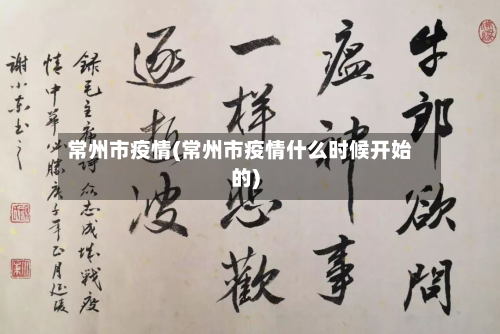 牛郎欲問
瘟神事
一樣悲歡
逐逝波
錄毛主席詩众志成城戰疫
情中華必勝庚子年正月延陵
謝小东书
常州市疫情(常州市疫情什么时候开始
的)